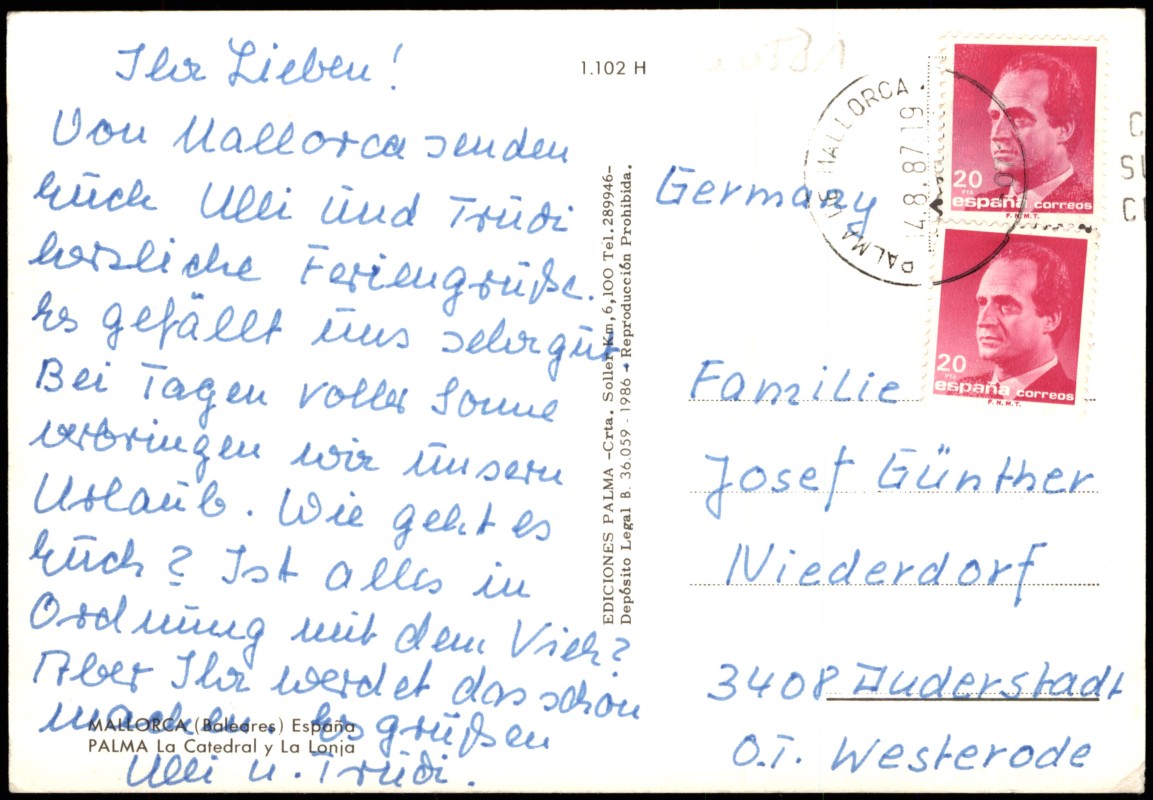 Ihr Lieben!
Von Mallorca senden
Euch Ulli und Trudi
herzliche Feriengrüße.
Es gefällt uns sehr gut
Bei Tagen voller Sonne
verbringen wir unsern
Urlaub. Wie geht es
Euch? Ist alles in
Ordnung mit dem Vieh?
Aber Ihr werdet das schon
machen. Es grüßen
Ulli u. Trudi.
MALLORCA (Baleares) España
PALMA La Catedral y La Lonja
1.102 H
EDICIONES PALMA -Crta. Soller Km,6,100 Tel. 289946-
Depósito Legal B. 36.059 - 1986 - Reproducción Prohibida.
PALMA DE MALLORCA
14.8.87.19
20 PTA
españa correos
F.N.M.T.
20
españa correos
F.N.M.T.
Germany
Familie
Josef Günther
Niederdorf
3408 Duderstadt
O.T. Westerode